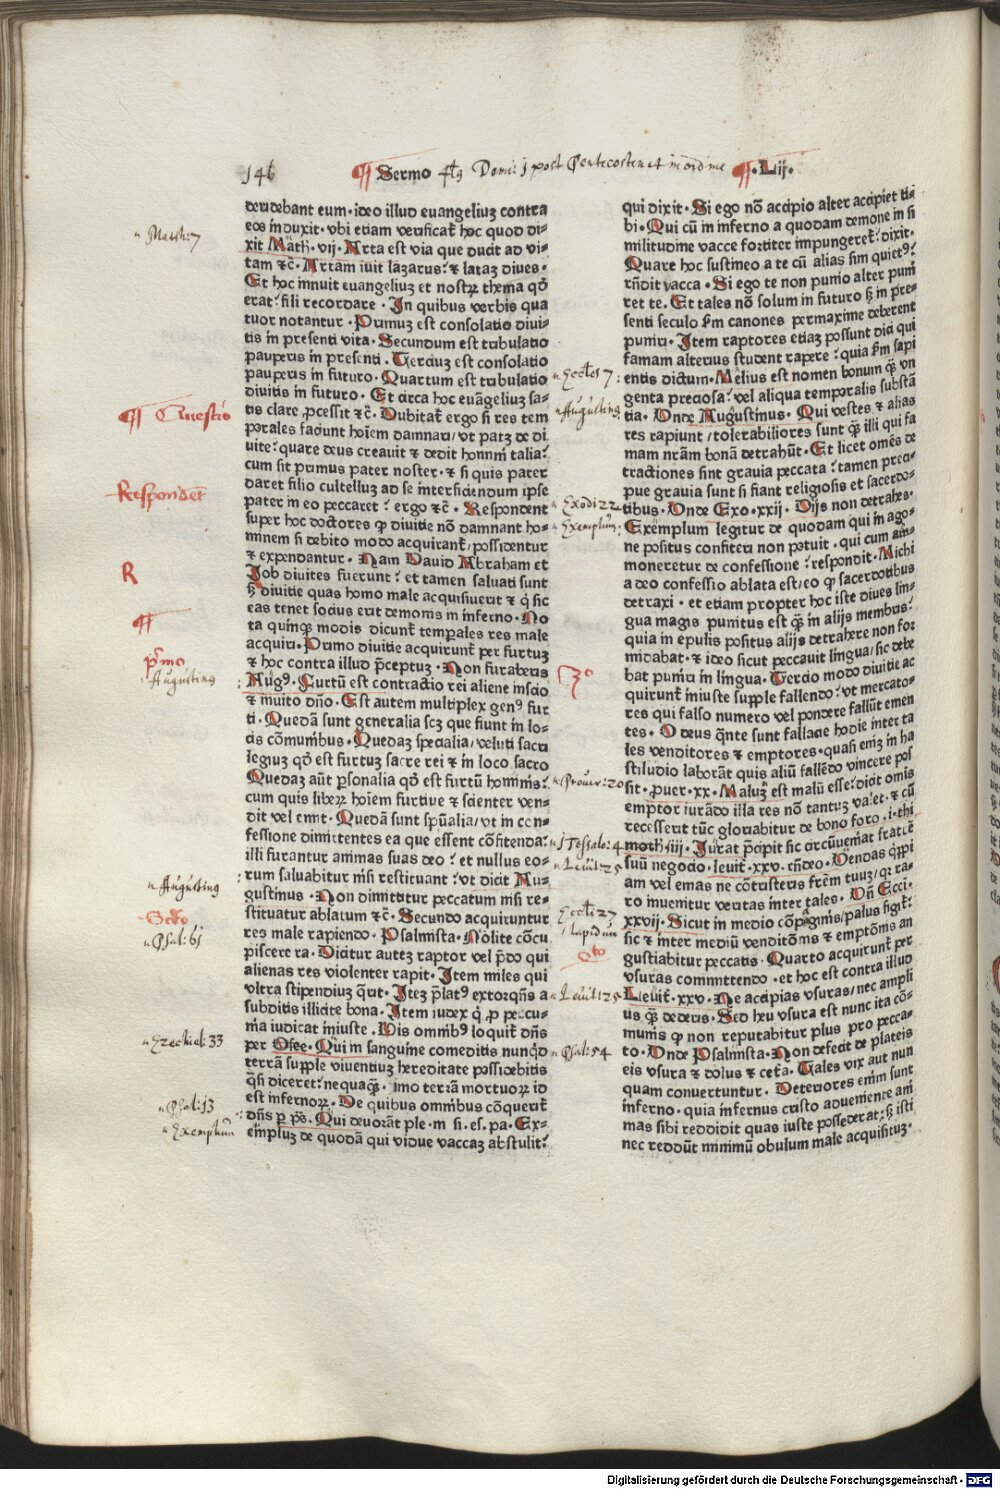 146 Sermo Domi: j post Pentecosten et in ordine ·Lij·
deridebant eum· ideo illud euangeliuȝ contra
eos induxit· vbi etiam verificat᷑ hoc quod di-
xit Math· vij· Arta est via que ducit ad vi-
tam ⁊c̄· Artam iuit lazarus: ⁊ lataȝ diues·
Et hoc innuit euangeliuȝ et nostrꝝ thema qd̓
erat: fili recordare· In quibus verbis qua
tuor notantur· Primuȝ est consolatio diui-
tis in presenti vita· Secundum est tribulatio
pauperis in presenti· Terciuȝ est consolatio
pauperis in futuro· Quartum est tribulatio
diuitis in futuro· Et circa hoc euāgeliuȝ sa-
tis clare ꝓcessit ⁊c̄· Dubitat᷑ ergo si res tem
porales faciunt hoīem damnari/vt patȝ de di
uite: quare deus creauit ⁊ dedit homini talia:
cum sit primus pater noster· ⁊ si quis pater
daret filio cultelluȝ ad se interficiendum ipse
pater in eo peccaret: ergo ⁊c̄· Respondent
super hoc doctores ꝙ diuitie nō damnant ho-
minem si debito modo acquirant᷑/possidentur
⁊ expendantur· Nam Dauid Abraham et
Job diuites fuerunt: et tamen saluati sunt
sȝ diuitie quas homo male acquisiuerit ⁊ ꝙ sic
eas tenet socius erit demonis in inferno· No
ta quinqȝ modis dicunt᷑ temꝑales res male
acquiri· Primo diuitie acquirunt᷑ per furtuȝ
⁊ hoc contra illud p̄ceptuȝ· Non furaberis
Augꝰ· Furtū est contractio rei aliene inscio
⁊ inuito dn̄o· Est autem multiplex genꝰ fur
ti· Quedā sunt generalia scȝ que fiunt in lo-
cis cōmunibus· Quedaȝ specialia/veluti sacri
legiuȝ qd̓ est furtuȝ sacre rei ⁊ in loco sacro
Quedaȝ aūt ꝑsonalia qd̓ est furtū hominis:
cum quis liberꝝ hoīem furtiue ⁊ scienter ven-
dit vel emit· Quedā sunt spūalia/vt in con-
fessione dimittentes ea que essent cōfitenda:
illi furantur animas suas deo: et nullus eo-
rum saluabitur nisi restituant: vt dicit Au-
gustinus· Non dimittitur peccatum nisi re-
stituatur ablatum ⁊c̄· Secundo acquiruntur
res male rapiendo· Psalmista· Nolite cōcu
piscere ra· Dicitur auteȝ raptor vel p̄do qui
alienas res violenter rapit· Item miles qui
vltra stipendiuȝ q̄rit· Iteȝ p̄latꝰ extorq̄ns a
subditis illicite bona· Item iudex ꝙ ꝓ pecu-
nia iudicat iniuste· His omnibꝰ loquit᷑ dn̄s
per Osee· Qui in sanguine comeditis nunqd̓
terrā supple viuentiuȝ hereditate possidebitis
q̄si diceret: nequaqȝ· imo terrā mortuoꝝ id
est infernoꝝ· De quibus omnibus cōquerit᷑
dn̄s ꝑ ps· Qui deuorāt ple· m̄ si· es· pa· Ex-
empluȝ de quodā qui vidue vaccaȝ abstulit:
qui dixit· Si ego nō accipio alter accipiet ti-
bi· Qui cū in inferno a quodam demone in si
militudine vacce fortiter impungeret᷑: dixit·
Quare hoc sustineo a te cū alias sim quietꝰ:
rn̄dit vacca· Si ego te non punio alter puni
ret te· Et tales nō solum in futuro sȝ in pre-
senti seculo ẜm canones permaxime deberent
puniri· Item raptores etiaȝ possunt dici qui
famam alterius student rapere: quia ẜm sapi
entis dictum· Melius est nomen bonum qȝ vn
genta preciosa: vel aliqua temporalis substā
tia· Onde Augustinus· Qui vestes ⁊ alias
res rapiunt/tolerabiliores sunt qȝ illi qui fa
mam nr̄am bonā detrahūt· Et licet omēs de
tractiones sint grauia peccata: tamen preci-
pue grauia sunt si fiant religiosis et sacerdo-
tibus· Onde Exo· xxij· Dijs non detrahes·
Exemplum legitur de quodam qui in ago-
ne positus confiteri non potuit· qui cum am-
moneretur de confessione: respondit· Michi
a deo confessio ablata est/eo ꝙ sacerdotibus
detraxi· et etiam propter hoc iste diues lin-
gua magis punitus est qȝ in alijs membris:
quia in epulis positus alijs detrahere non for
midabat· ⁊ ideo sicut peccauit lingua/sic debe
bat puniri in lingua· Tercio modo diuitie ac
quirunt᷑ iniuste supple fallendo: vt mercato-
res qui falso numero vel pondere fallūt emen
tes· O deus q̄nte sunt fallacie hodie inter ta
les venditores ⁊ emptores· quasi eniȝ in ha
stiludio laborāt quis aliū fallēdo vincere pos
sit· ꝓuer· xx· Maluȝ est malū esse: dicit omis
emptor iurādo illa res nō tantuȝ valet· ⁊ cū
recesserit tūc gloriabitur de bono foro· i· thi
moth· iiij· Jurat p̄cipit sic circūueniat fratrē
suū negocio· leuit· xxv· rn̄deo· Vendas q̄ppi
am vel emas ne cōtristeris frēm tuuȝ/qr ra-
ro inuenitur veritas inter tales· Un̄ Ecci·
xxvij· Sicut in medio cōpaginis/palus figit᷑:
sic ⁊ inter mediū venditōnis ⁊ emptōnis an
gustiabitur peccatis· Quarto acquirunt᷑ per
vsuras committendo· et hoc est contra illud
Leuit· xxv· Ne accipias vsuras/nec ampli
us qȝ dederis· Sed heu vsura est nunc ita cō-
munis ꝙ non reputabitur plus pro pecca-
to· Onde Psalmista· Non defecit de plateis
eis vsura ⁊ dolus ⁊ cetᷓa· Tales vix aut nun
quam conuertuntur· Deteriores enim sunt
inferno· quia infernus cristo adueniente ani
mas sibi reddidit quas iuste possederat: sȝ isti
nec reddūt minimū obulum male acquisituȝ·
Math: 7
Questio
Respondet
R
primo
Augustinus
Augustinus
Secdo
Psal: 61
Ezechiel: 33
Psal: 13
Exemplum
Eccles 7:
Augustinus
Exodi 22
Exemplum:
3º
Prouer: 20
j Tessalo: 4
Leuit: 25
Eccli: 27
lapidum
4to
Leuit: 25
Psal: 54
Digitalisierung gefördert durch die Deutsche Forschungsgemeinschaft - DFG